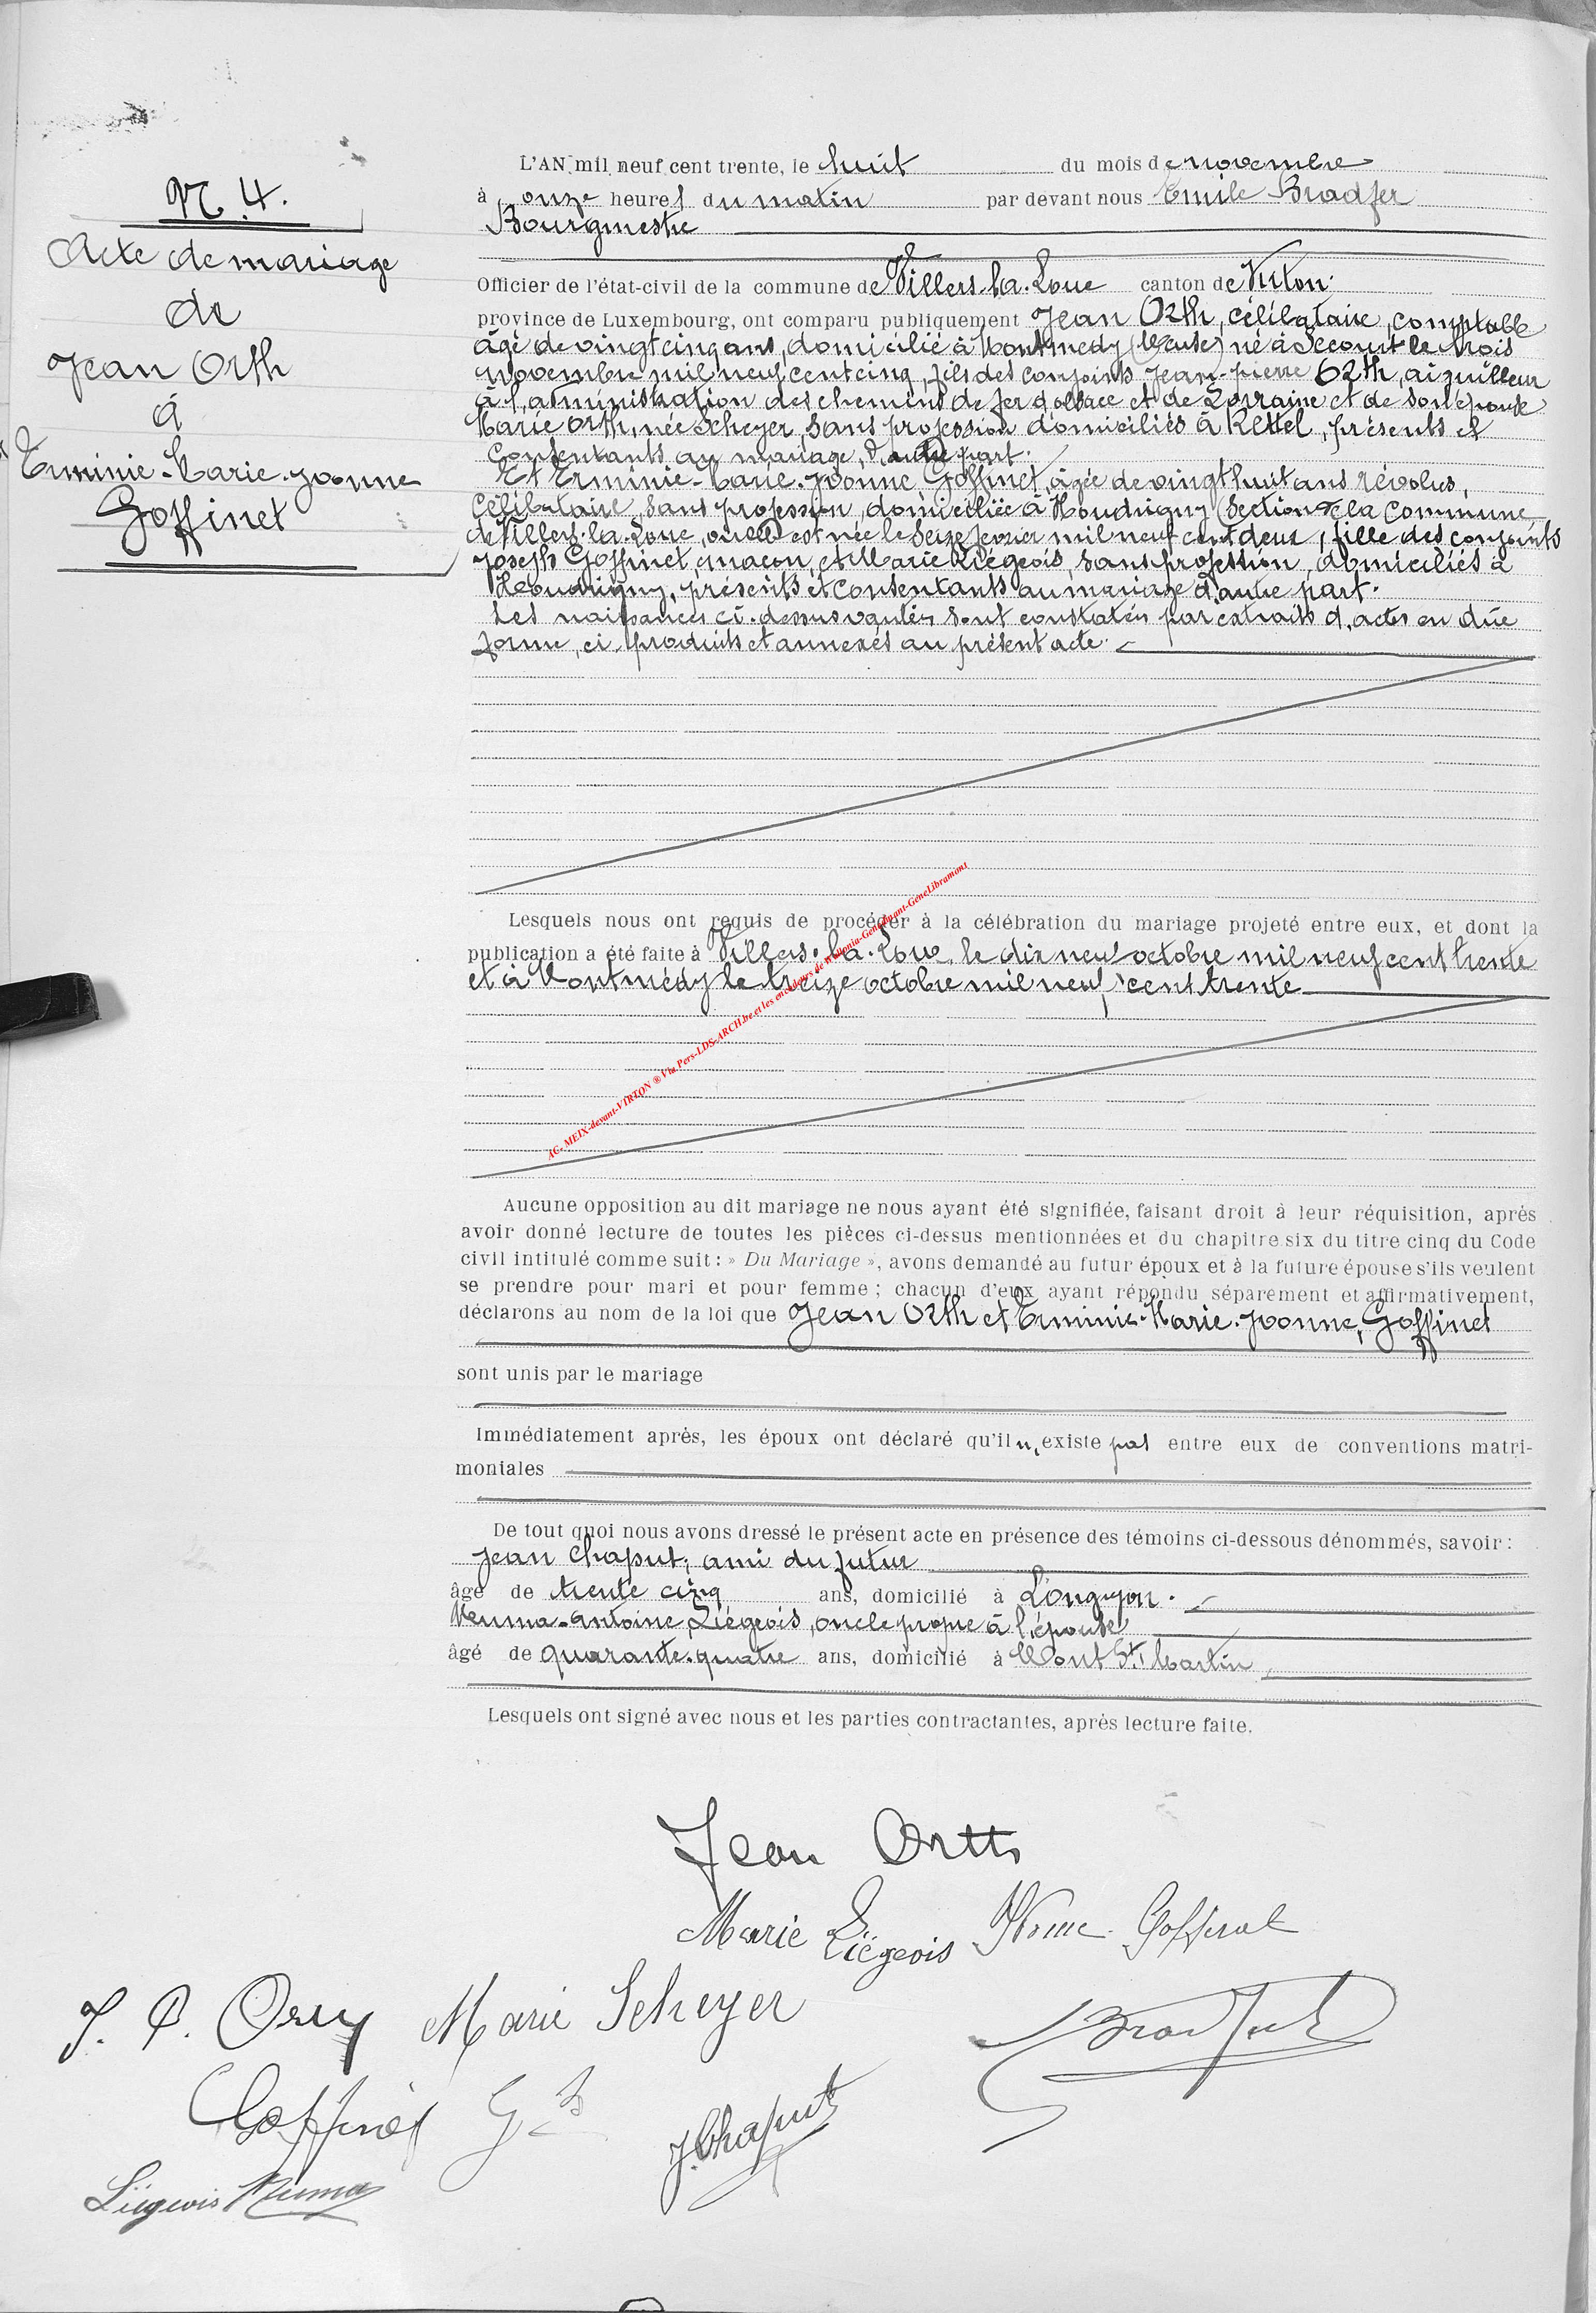 N. 4.
Acte de mariage
de
Jean Orth
à
Erminie-Marie-Yvonne
Goffinet
L'AN mil neuf cent trente, le huit du mois de novembre
à onze heures du matin par devant nous Emile Bradfer
Bourgmestre
Officier de l'état-civil de la commune de Villers-la-Loue canton de Virton
province de Luxembourg, ont comparu publiquement Jean Orth, célibataire, comptable
âgé de vingt cinq ans, domicilié à Montmédy (Meuse) né à Secourt le trois
novembre mil neuf cent cinq, fils des conjoints Jean-pierre Orth, aiguilleur
à l'administration des chemins de fer d'alsace et de Lorraine et de son épouse
Marie Orth, née Scheyer, sans profession domiciliés à Rettel, présents et
consentants au mariage, d'autre part.
Et Erminie-Marie-Yvonne Goffinet, âgée de vingt huit ans révolus,
célibataire, sans profession, domiciliée à Houdrigny (section de la commune
de Villers-la-Loue, où elle est née le seize février mil neuf cent deux, fille des conjoints
Joseph Goffinet, maçon, et Marie Liégeois, sans profession, domiciliés à
Houdrigny, présents et consentants au mariage d'autre part.
Les naissances ci-dessus sont constatées par extraits d'actes en dûe
forme, ci-produits et annexés au présent acte.
Lesquels nous ont requis de procéder à la célébration du mariage projeté entre eux, et dont la
publication a été faite à Villers-la-Loue, le dix neuf octobre mil neuf cent trente
et à Montmédy le treize octobre mil neuf cent trente
AG- MEIX-devant-VIRTON ® Via Pers-LDS-ARCH.be et les encodeurs de Wallonia-GeneDinant-GeneLibramont
Aucune opposition au dit mariage ne nous ayant été signifiée, faisant droit à leur réquisition, après
avoir donné lecture de toutes les pièces ci-dessus mentionnées et du chapitre six du titre cinq du Code
civil intitulé comme suit : » Du Mariage », avons demandé au futur époux et à la future épouse s'ils veulent
se prendre pour mari et pour femme ; chacun d'eux ayant répondu séparement et affirmativement,
déclarons au nom de la loi que Jean Orth et Erminie-Marie-Yvonne, Goffinet
sont unis par le mariage
Immédiatement après, les époux ont déclaré qu'il n'existe pas entre eux de conventions matri-
moniales
De tout quoi nous avons dressé le présent acte en présence des témoins ci-dessous dénommés, savoir :
Jean Chaput, ami du futur
âgé de trente cinq ans, domicilié à Longuyon.
Numa-Antoine Liégeois, oncle propre à l'épouse
âgé de quarante-quatre ans, domicilié à Mont St Martin
Lesquels ont signé avec nous et les parties contractantes, après lecture faite.
Jean Orth
Marie Liégeois Yvonne Goffinet
J. P. Orth Marie Scheyer Bradfer
Goffinet J. Chaput
Liégeois Numa